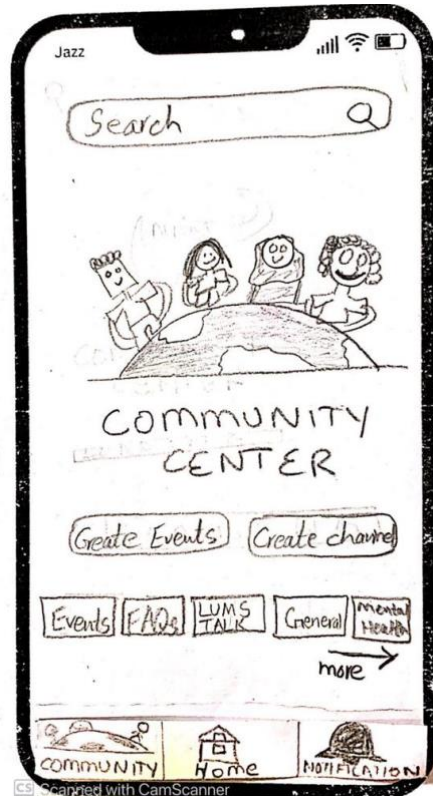 Jazz
Search
COMMUNITY
CENTER
Create Events Create channel
Events FAQs LUMS TALK General Mental Health
more
COMMUNITY Home NOTIFICATION
CS Scanned with CamScanner